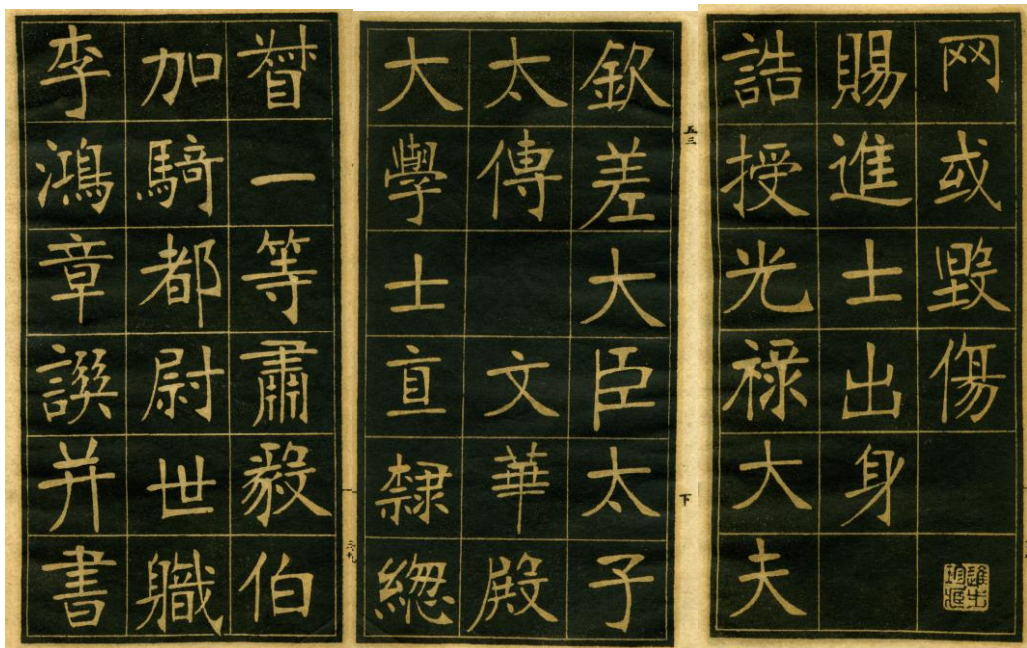 网或毀傷
賜進士出身
誥授光禄大夫
五三
下
欽差大臣太子
太傅 文華殿
大學士直隸緫
督一等肅毅伯
加騎都尉世軄
李鴻章譔并書